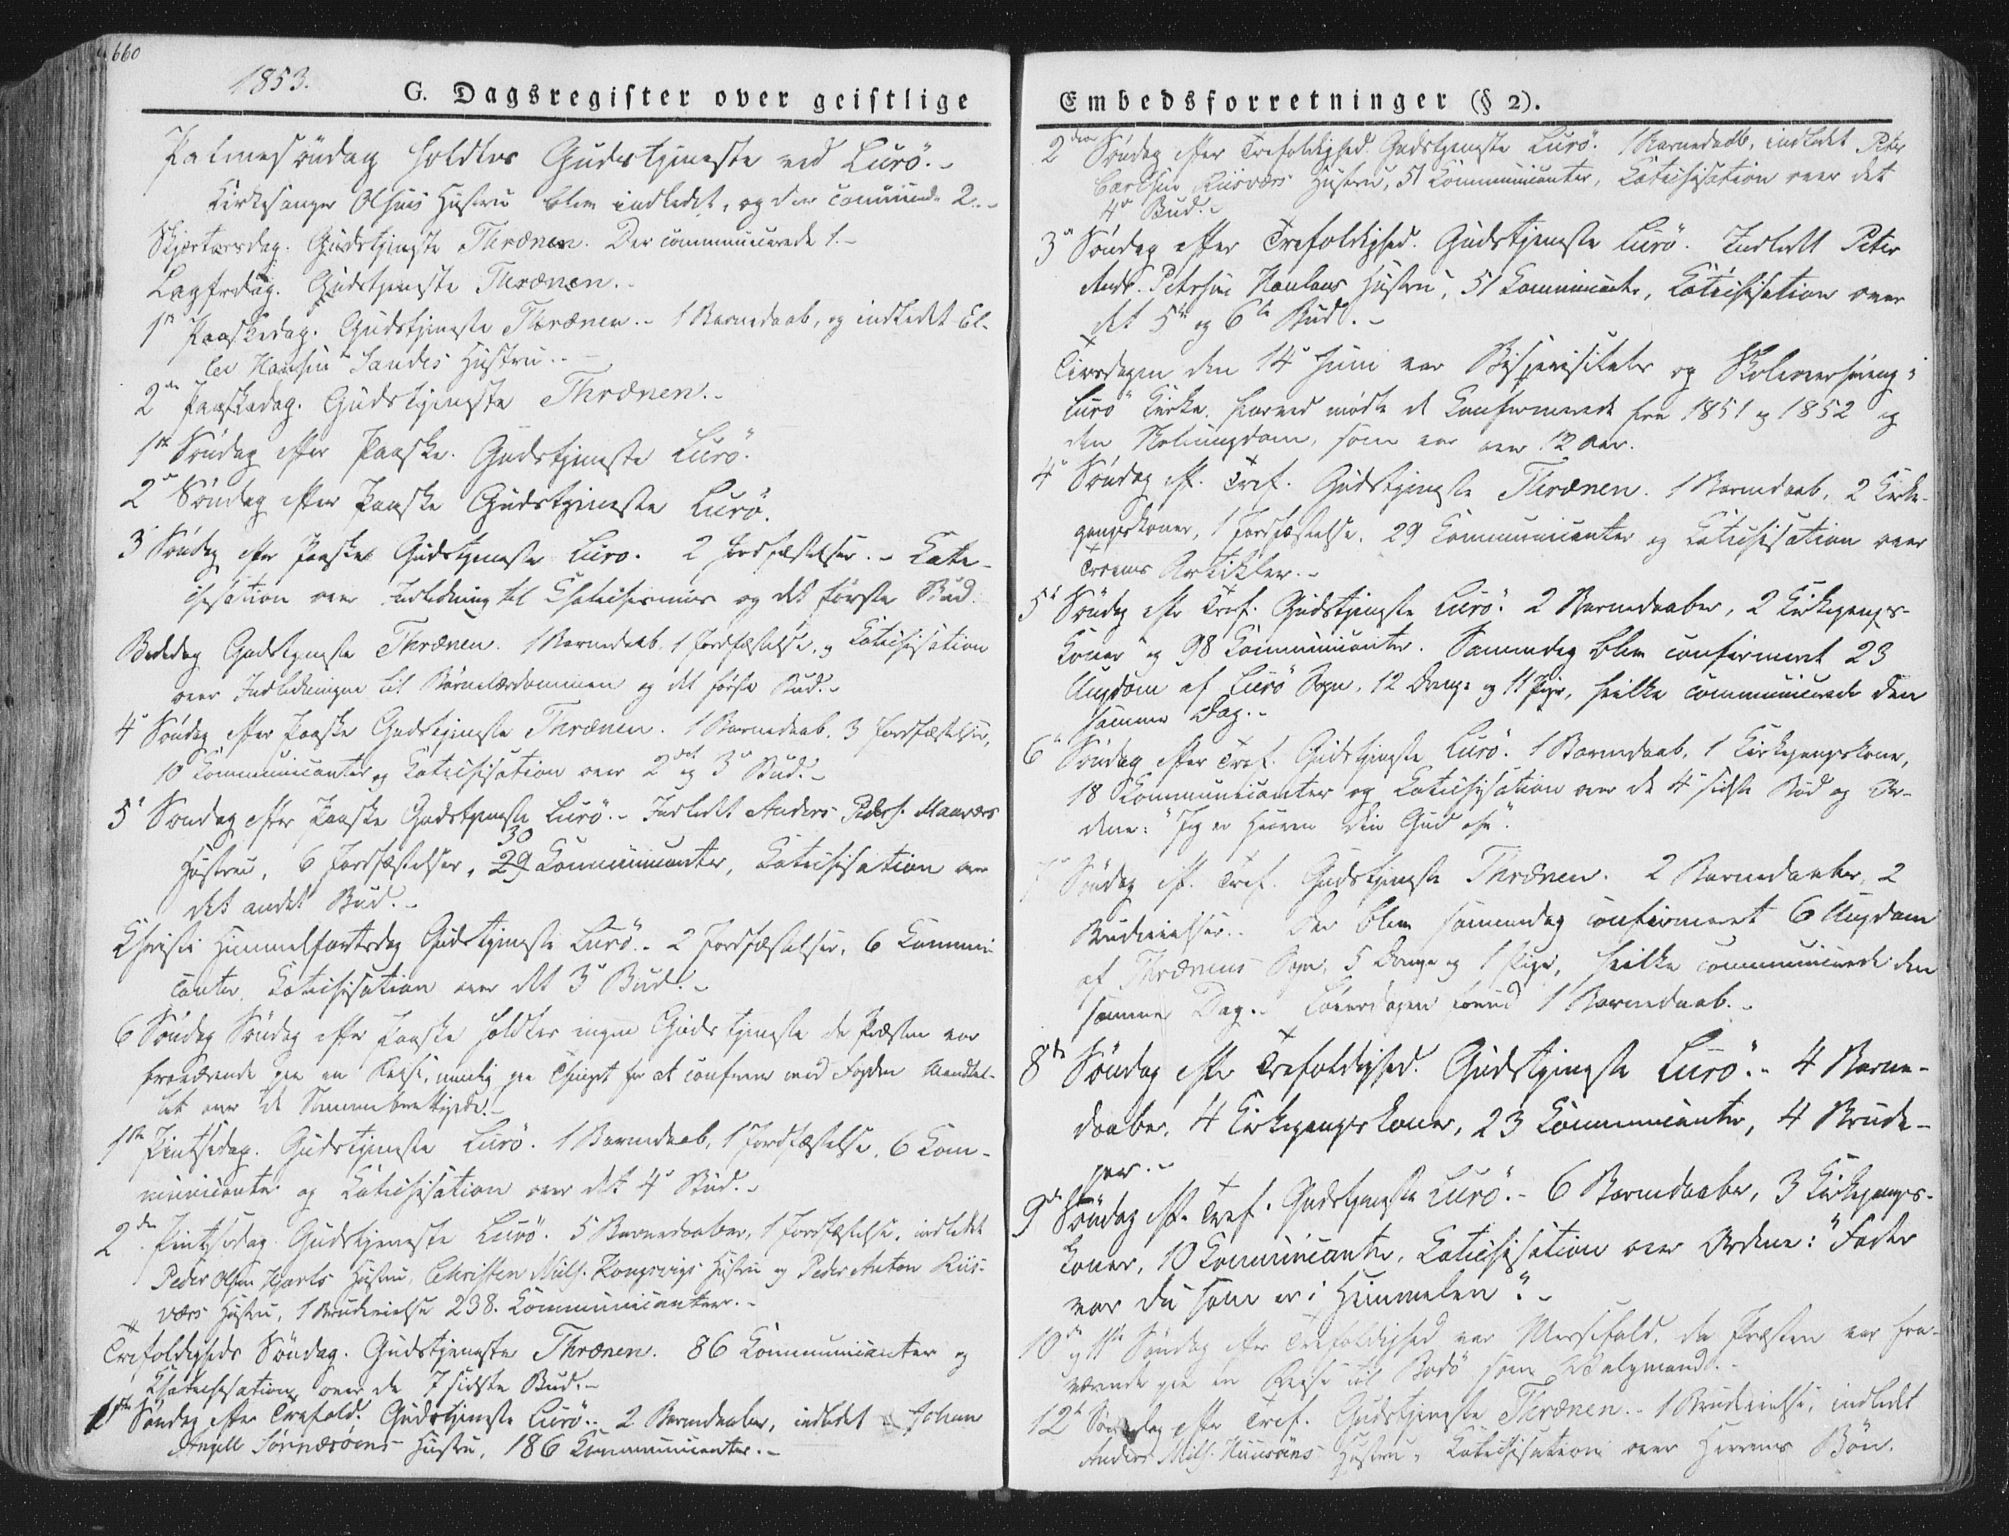 660
1853.
G. Dagsregister over geistlige
Palmesöndag holdtes Gudstjeneste ved Lurö.-
Kirkesanger Olsens Hustru blev indledet, og der communic. 2.-
Skjærtorsdag. Gudstjeneste Thrænen. Der communicerede 1.-
Langfredag. Gudstjeneste Thrænen.-
1ste Paaskedag. Gudstjeneste Thrænen.- 1 Barnedaab, og indledet El-
Hansen Sandes Hustru.-
2den Paaskedag. Gudstjeneste Thrænen.-
1ste Söndag efter Paaske. Gudstjeneste Lurö.
2den Söndag efter Paaske Gudstjeneste Lurö.
3 Söndag efter Paaske Gudstjeneste Lurö. 2 Jordfæstelser.- Kate-
chisation over Indledning til Chatechismus og det förste Bud.
Bededag Gudstjeneste Thrænen. 1 Barnedaab, 1 Jordfæstelse, og Katechisation
over Indledningen til Börnelærdommen og det förste Bud.-
4de Söndag efter Paaske Gudstjeneste Thrænen. 1 Barnedaab, 3 Jordfæstelser,
10 Communicanter og Katechisation over 2det og 3de Bud.-
5te Söndag efter Paaske Gudstjeneste Lurö.- Indledet Anders Peders. Maaværs
30
Hustru, 6 Jordfæstelser, 29 Communicanter, Katechisation over
det andet Bud.-
Christi Himmelfartsdag Gudstjeneste Lurö.- 2 Jordfæstelser, 6 Communi-
canter, Katechisation over det 3de Bud.-
6 Söndag Söndag efter Paaske holdtes ingen Gudstjeneste da Præsten var
fraværende paa en Reise, nemlig paa Thinget for at conferere med Fogden
over de Stemmeberettigede.-
1ste Pintsedag. Gudstjeneste Lurö. 1 Barnedaab, 1 Jordfæstelse, 6 Com-
municanter og Katechisation over det 4de Bud.-
2den Pintsedag Gudstjeneste Lurö. 5 Barnedaaber, 1 Jordfæstelse, indledet
Peder Olsen Hjarts Hustru, Christen Nils. Kongsvigs Hustru og Peder Anton Riis-
værs Hustru, 1 Brudevielse 238. Communicanter.-
Trefoldigheds Söndag. Gudstjeneste Thrænen. 86 Communicanter og
Chatechisation over de 7 sidste Bud.-
1ste Söndag efter Trefold. Gudstjeneste Lurö.- 2 Barnedaaber, indledet Johan
Angell Sörnæsöens Hustru, 186 Communicanter.-
Embedsforretninger (§ 2).
2den Söndag efter Trefoldighed Gudstjeneste Lurö. 1 Barnedaab, indledet Peter
Carlsen Riisværs Hustru, 51 Communicanter, Katechisation over det
4de Bud.-
3de Söndag efter Trefoldighed. Gudstjeneste Lurö. Indledt Peter
Andr. Petersens Hustru, 51 Communicanter, Katechisation over
det 5te og 6te Bud.-
Tirsdagen den 14de Juni var Bispevisitats og Skoleoverhöring i
Lurö Kirke, hvorved mödte de Confirmerede fra 1851 og 1852 og
den Skoleungdom, som var over 12 Aar.
4de Söndag eft. Tref. Gudstjeneste Thrænen. 1 Barnedaab, 2 Kirke-
gangskoner, 1 Jordfæstelse, 29 Communicanter og Katechisation over
Troens Artikler.-
5te Söndag eftr Tref. Gudstjeneste Lurö. 2 Barnedaaber, 2 Kirkegangs-
Koner og 98 Communicanter. Samme dag blev confirmeret 23
Ungdom af Lurö Sogn, 12 Drenge og 11 Piger, hvilke communicerede den
samme Dag.-
6te Söndag efter Tref. Gudstjeneste Lurö. 1 Barnedaab, 1 Kirkegangskone,
18 Communicanter og Katechisation over de 4 sidste Bud og Or-
dene: "Jeg er Herren din Gud osv".
7de Söndag eft. Tref. Gudstjeneste Thrænen. 2 Barnedaaber, 2
Brudevielser.- Der blev sammedag confirmeret 6 Ungdom
af Thrænens Sogn, 5 Drenge og 1 Pige, hvilke communicerede den
samme Dag.- Löverdagen forud 1 Barnedaab.-
8de Söndag efter Trefoldighed. Gudstjeneste Lurö.- 4 Barne-
daaber, 4 Kirkegangskoner, 23 Communicanter, 4 Brude-
par.-
9de Söndag eft. Tref. Gudstjeneste Lurö.- 6 Barnedaaber, 3 Kirkegangs-
koner, 10 Communicanter, Katechisation over Ordene: "Fader
vor du som er i Himmelen".-
10de og 11te Söndag efter Trefoldighed var Messefald, da Præsten var fra-
værende paa en Reise til Bodö som Valgmand.-
12te Söndag efter Tref. Gudstjeneste Thrænen.- 1 Brudevielse, indledt
Anders Nils. Hustru, Katechisation over Herrens Bön.